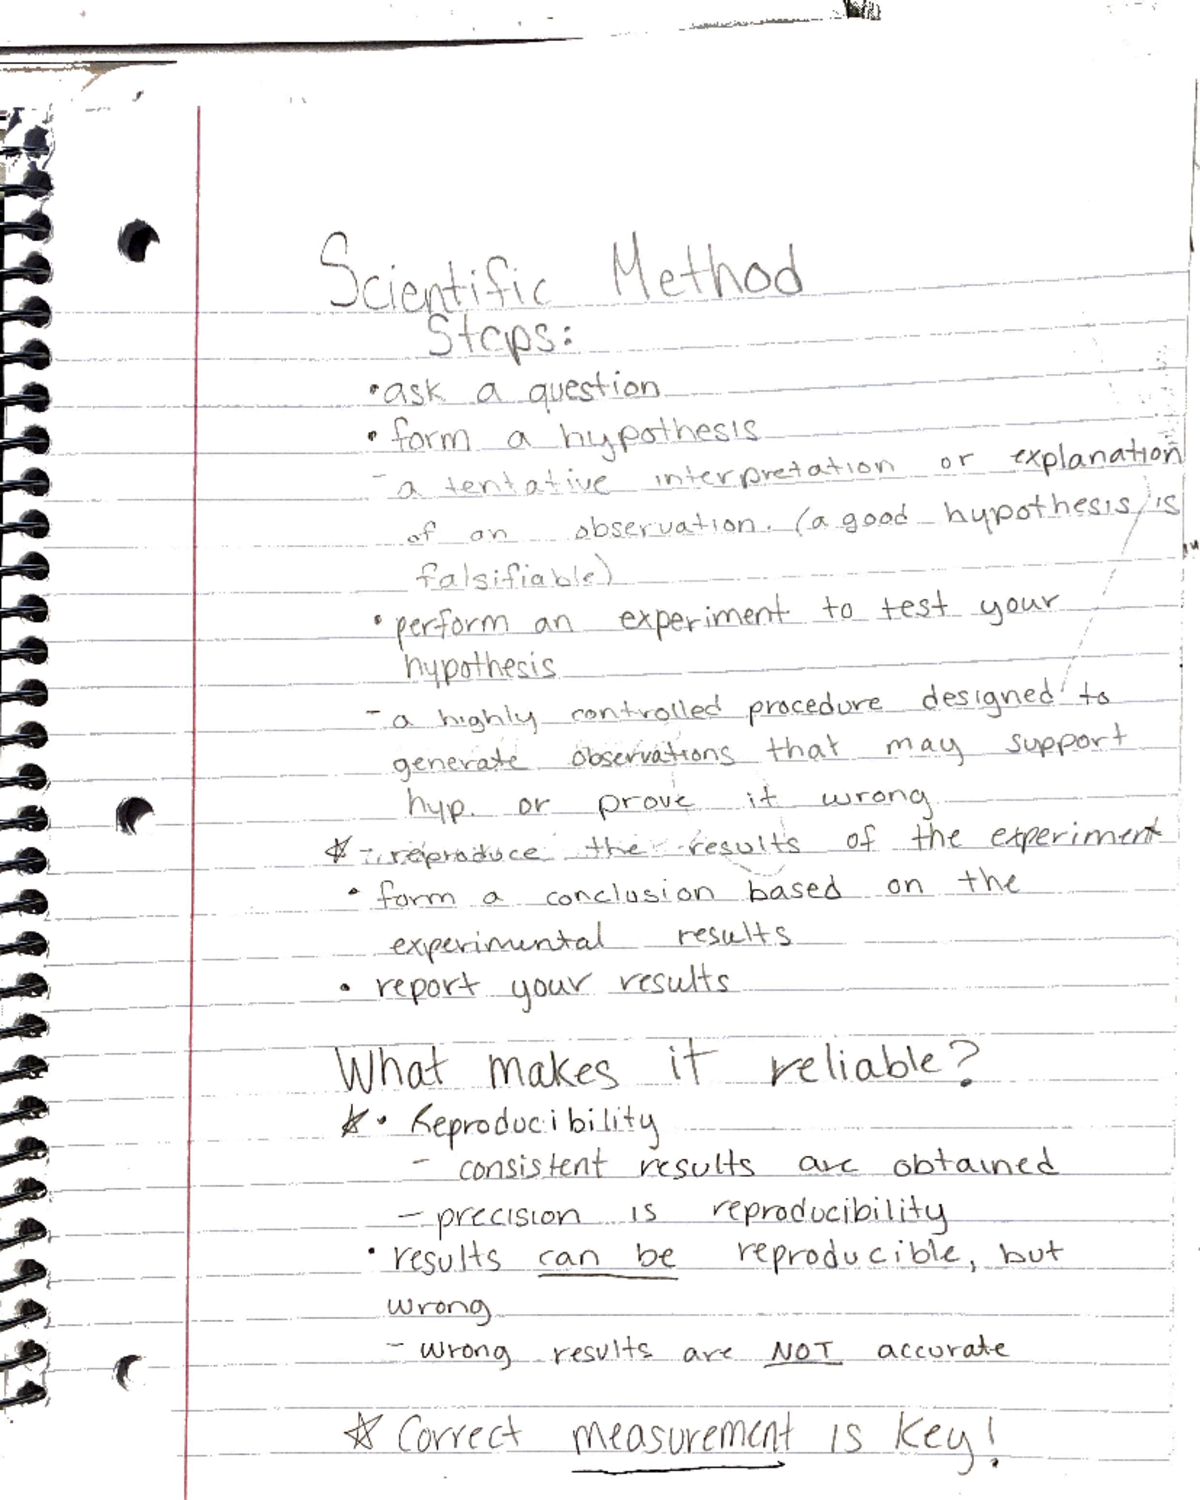 Scientific Method
Steps:
• ask a question
• form a hypothesis
- a tentative interpretation or explanation
of an observation. (a good hypothesis is
falsifiable)
• perform an experiment to test your
hypothesis
- a highly controlled procedure designed to
generate observations that may support
hyp. or prove it wrong
☆ - reproduce the results of the experiment
• form a conclusion based on the
experimental results
• report your results
What makes it reliable?
☆ • Reproducibility
- consistent results are obtained
- precision is reproducibility
• results can be reproducible, but
wrong
- wrong results are NOT accurate
☆ Correct measurement is key!